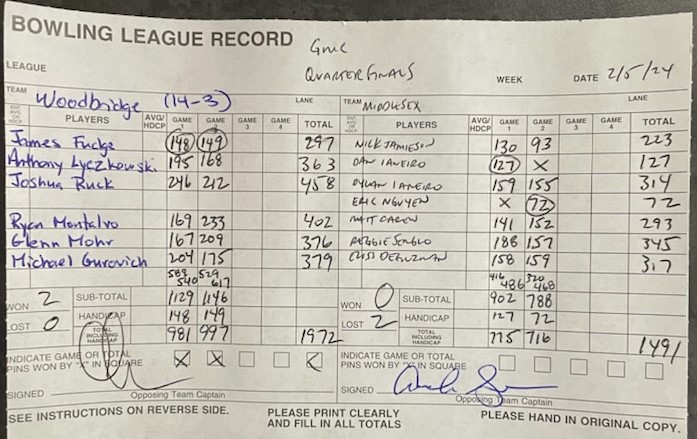 BOWLING LEAGUE RECORD
GMC
LEAGUE QUARTERFINALS WEEK DATE 2/5/24
TEAM Woodbridge (14-3) LANE TEAM MIDDLESEX LANE
ENT. AVG. OR HDCP PLAYERS AVG/HDCP GAME 1 GAME 2 GAME 3 GAME 4 TOTAL PLAYERS AVG/HDCP GAME 1 GAME 2 GAME 3 GAME 4 TOTAL
James Fudge 148 149 297 NICK JAMIESON 130 93 223
Anthony Lyczkowski 195 168 363 DAN IANEIRO 127 X 127
Joshua Ruck 246 212 458 DYLAN IANEIRO 159 155 314
ERIC NGUYEN X 72 72
Ryan Montalvo 169 233 402 MATT 141 152 293
Glenn Mohr 167 209 376 REGGIE 188 157 345
Michael Gurovich 204 175 379 CRIS DEGUZMAN 158 159 317
589 540 529 617 416 486 320 468
WON 2 SUB-TOTAL 1129 1146 WON 0 SUB-TOTAL 902 788
LOST 0 HANDICAP 148 149 LOST 2 HANDICAP 127 72
TOTAL INCLUDING HANDICAP 981 997 1972 TOTAL INCLUDING HANDICAP 775 716 1491
INDICATE GAME OR TOTAL PINS WON BY "X" IN SQUARE X X X INDICATE GAME OR TOTAL PINS WON BY "X" IN SQUARE
SIGNED Opposing Team Captain SIGNED Opposing Team Captain
SEE INSTRUCTIONS ON REVERSE SIDE. PLEASE PRINT CLEARLY AND FILL IN ALL TOTALS PLEASE HAND IN ORIGINAL COPY.